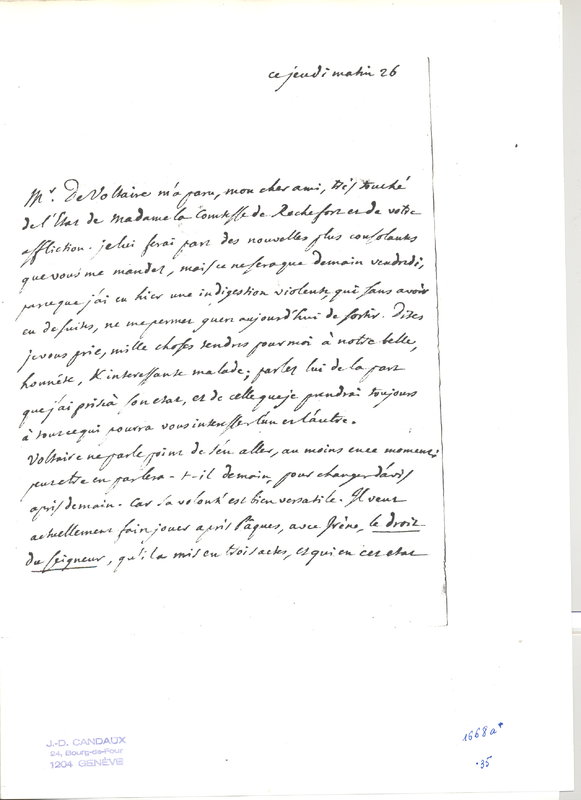 ce jeudi matin 26
Mr. De Voltaire m'a paru, mon cher ami, très touché
de l'Etat de Madame la Comtesse de Rochefort et de votre
affliction. je lui ferai part des nouvelles plus consolantes
que vous me mandez, mais ce ne sera que demain vendredi,
parce que j'ai eu hier une indigestion violente, qui sans avoir
eu de suites, ne me permet guere aujourd'hui de sortir. Dites
je vous prie, mille choses tendres pour moi à notre belle,
honnête, & interessante malade; parlez lui de la part
que j'ai prise à son etat, et de celle que je prendrai toujours
à tout ce qui pourra vous interesser l'un et l'autre.
Voltaire ne parle point de s'en aller, au moins en ce moment;
peut etre en parlera-t-il demain pour changer d'avis
après demain. Car sa volonté est bien versatile. Il veut
actuellement faire jouer après Pâques, avec Irène, le droit
du Seigneur, qu'il a mis en trois actes, et qui en cet etat
J.-D. CANDAUX
24, Bourg-de-Four
1204 GENÈVE
1668a*
.35